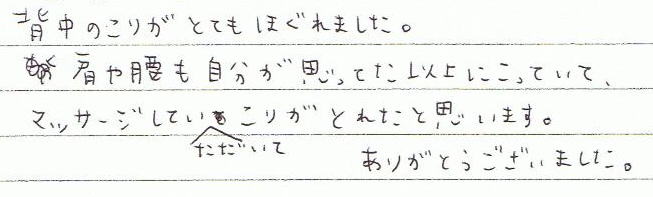 背中のこりがとてもほぐれました。
肩や腰も自分が思ってた以上にこっていて、
マッサージしていただいてこりがとれたと思います。
ありがとうございました。